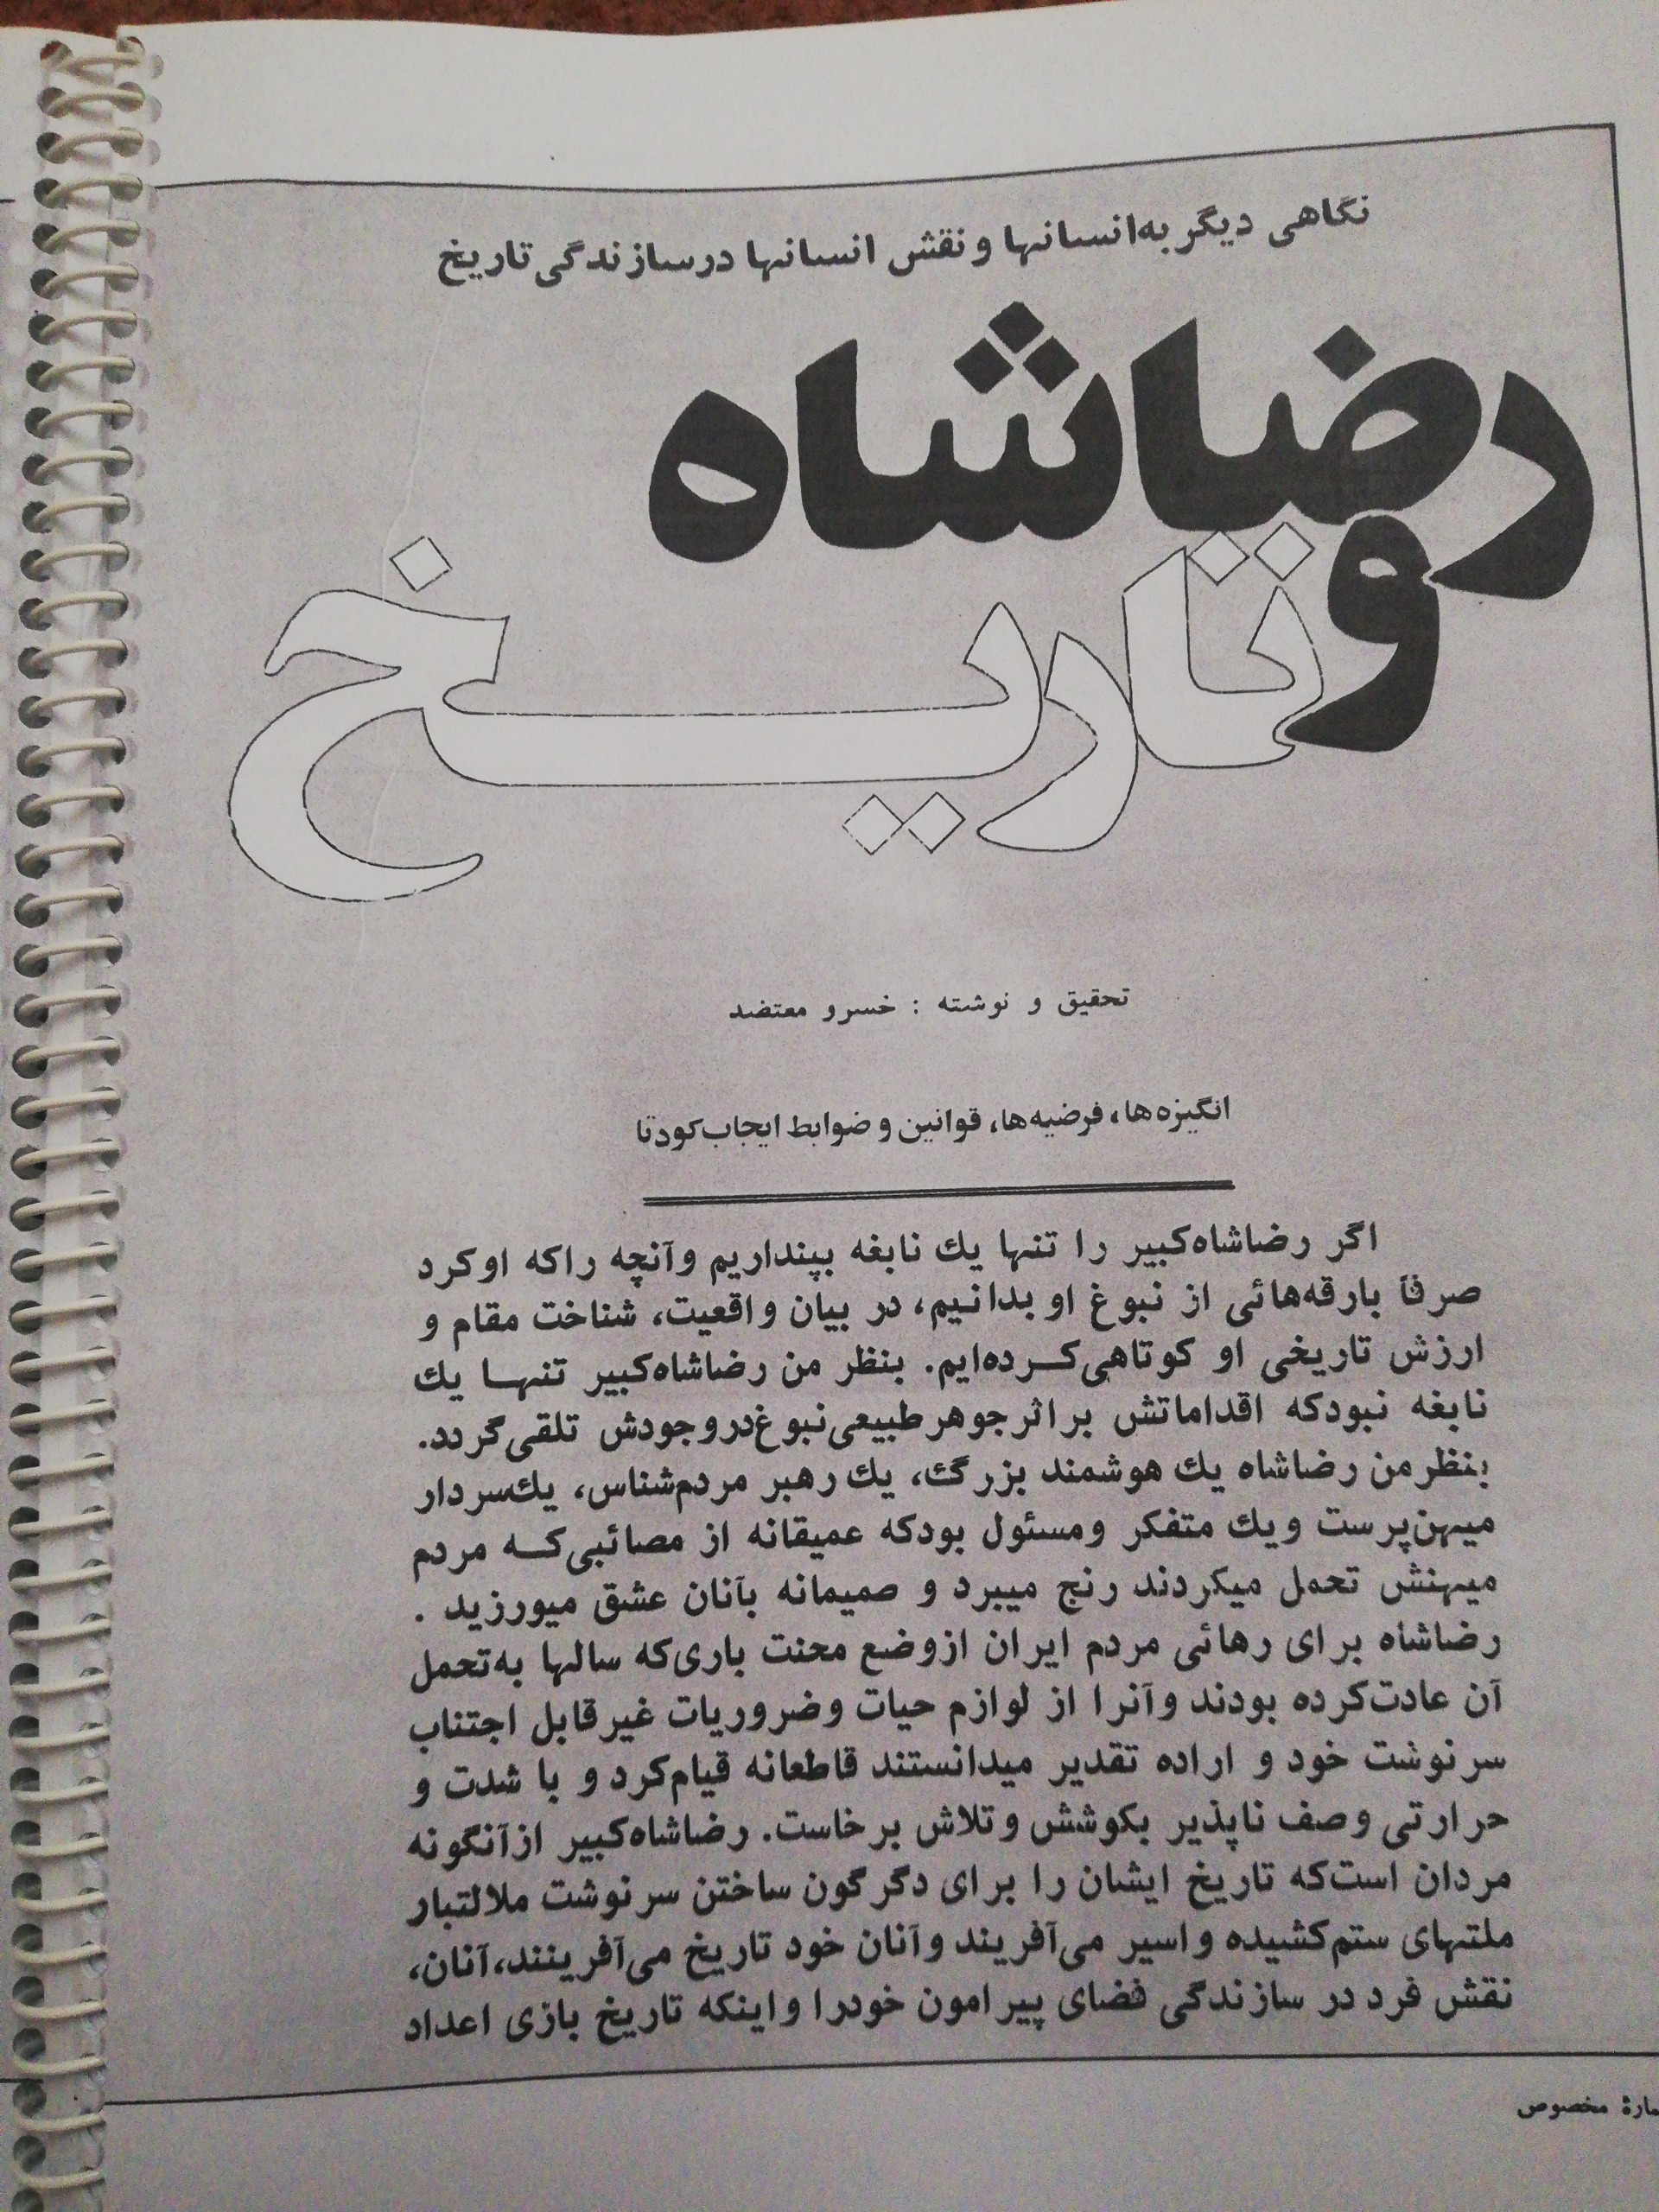 نگاهی دیگر به‌انسانها و نقش انسانها در سازندگی تاریخ
رضاشاه
و
تاریخ
تحقیق و نوشته : خسرو معتضد
انگیزه‌ها، فرضیه‌ها، قوانین و ضوابط ایجاب کودتا
اگر رضاشاه‌کبیر را تنها یك نابغه بپنداریم وآنچه راکه اوکرد
صرفاً بارقه‌هائی از نبوغ او بدانیم، در بیان واقعیت، شناخت مقام و
ارزش تاریخی او کوتاهی‌کرده‌ایم. بنظر من رضاشاه‌کبیر تنها یك
نابغه نبودکه اقداماتش براثر جوهر طبیعی نبوغ‌دروجودش تلقی‌گردد.
بنظر من رضاشاه یك هوشمند بزرگ، یك رهبر مردم‌شناس، یك‌سردار
میهن‌پرست ویك متفکر ومسئول بودکه عمیقانه از مصائبی‌که مردم
میهنش تحمل میکردند رنج میبرد و صمیمانه بآنان عشق میورزید .
رضاشاه برای رهائی مردم ایران ازوضع محنت باری‌که سالها به‌تحمل
آن عادت‌کرده بودند وآنرا از لوازم حیات وضروریات غیرقابل اجتناب
سرنوشت خود و اراده تقدیر میدانستند قاطعانه قیام‌کرد و با شدت و
حرارتی وصف ناپذیر بکوشش وتلاش برخاست. رضاشاه‌کبیر ازآنگونه
مردان است‌که تاریخ ایشان را برای دگرگون ساختن سرنوشت ملالتبار
ملتهای ستم‌کشیده واسیر می‌آفریند وآنان خود تاریخ می‌آفرینند،آنان،
نقش فرد در سازندگی فضای پیرامون خودرا واینکه تاریخ بازی اعداد
مخصوص